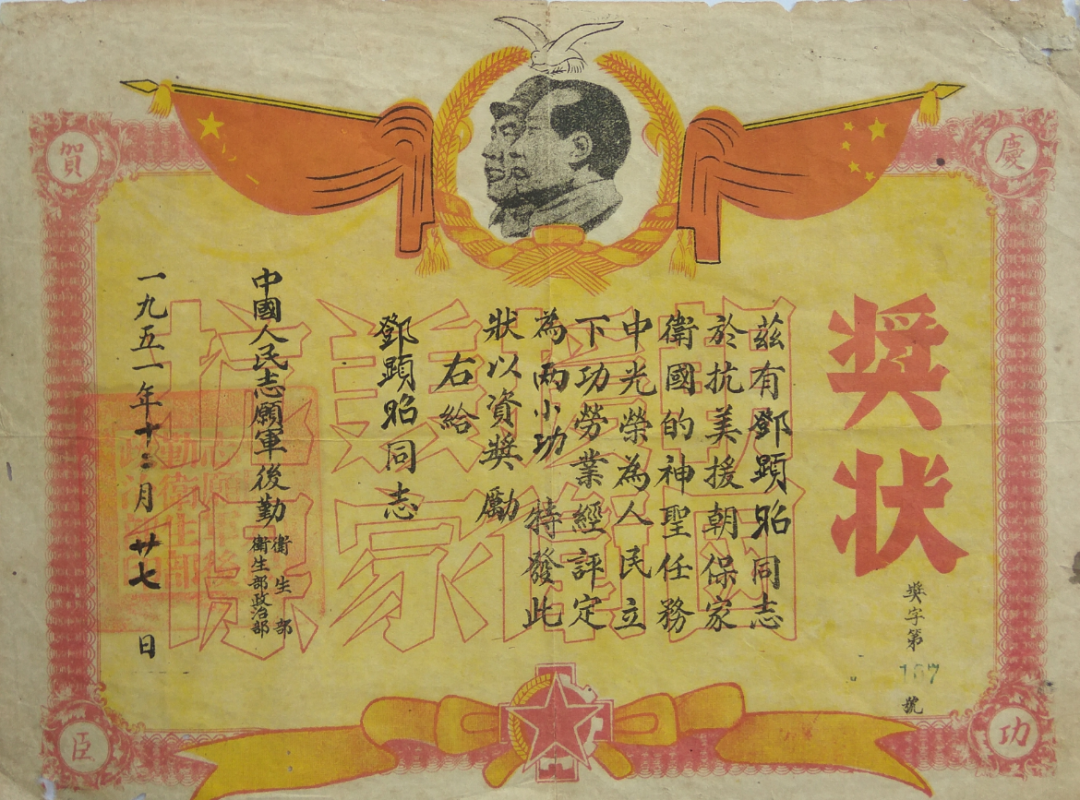 慶
賀
功
臣
獎狀
獎字第 167 號
茲有鄧顕昭同志
於抗美援朝保家
衛國的神聖任務
中光榮為人民立
下功勞業經評定
為兩小功 特發此
狀以資獎勵
右給
鄧顕昭同志
中國人民志願軍後勤 衛生部
衛生部政治部
一九五一年十二月廿七日
抗美援朝
保家衛國